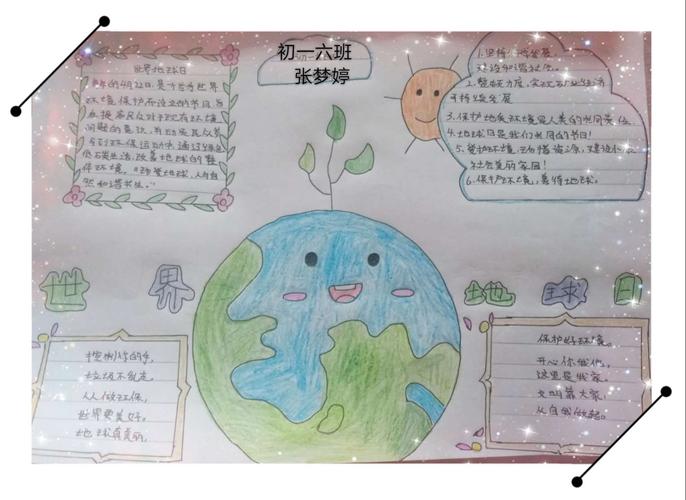 初一六班
张梦婷
世界地球日
每年的4月22日,是
环境保护而设立的节日,旨
在提高民众对于现有环境
问题的意识,并动员民众参
与到环保运动中,通过绿色
低碳生活,改善地球的整
体环境。"珍爱地球,人与自
然和谐共生。"
1.坚持
建设和谐
2.
可持续发展
3.保护地质环境是人类的共同责任
4.地球日是我们共同的节日!
5.爱护环境,珍惜资源,
社会美丽家园!
6.保护环境,善待地球。
世界
地球日
提醒你的手,
垃圾不乱走,
人人做环保,
世界更美好。
地球真美丽,
保护好环境。
开心你我他,
这里是我家,
又叫靠大家,
从自我做起。